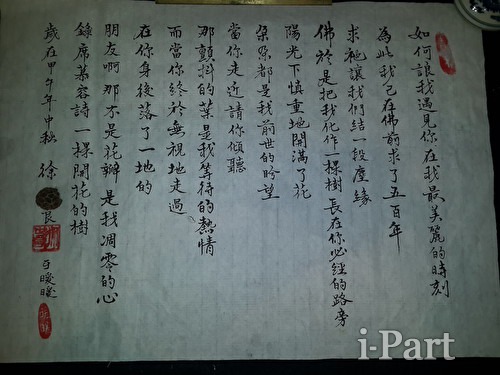 如何讓我遇見你在我最美麗的時刻
為此我已在佛前求了五百年
求祂讓我們結一段塵緣
佛於是把我化作一棵樹長在你必經的路旁
陽光下慎重地開滿了花
朵朵都是我前世的盼望
當你走近請你傾聽
那顫抖的葉是我等待的熱情
而當你終於無視地走過
在你身後落了一地的
朋友啊那不是花瓣是我凋零的心
錄席慕容詩一棵開花的樹
歲在甲午年中秋 徐 良
i-Part